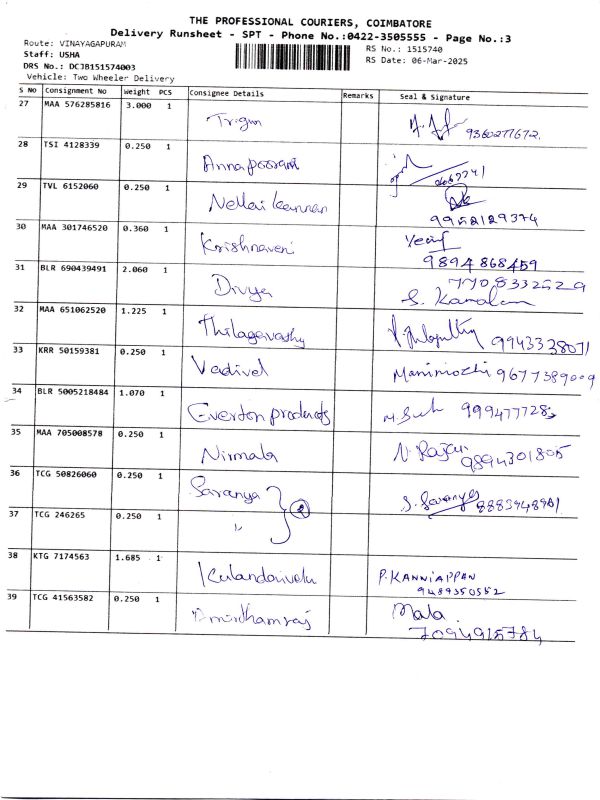 THE PROFESSIONAL COURIERS, COIMBATORE
Delivery Runsheet - SPT - Phone No.:0422-3505555 - Page No.:3
Route: VINAYAGAPURAM
Staff: USHA
DRS No.: DCJB151574003
Vehicle: Two Wheeler Delivery
RS No.: 1515740
RS Date: 06-Mar-2025
S No Consignment No Weight PCS Consignee Details Remarks Seal & Signature
27 MAA 576285816 3.000 1
28 TSI 4128339 0.250 1 Annapoorani
29 TVL 6152060 0.250 1 Nellai kannan
9952129374
30 MAA 301746520 0.360 1 Krishnaveni
9894868459
31 BLR 690439491 2.060 1 Divya
7708332529
S. Kamalam
32 MAA 651062520 1.225 1 Thilagavathy 9943338071
33 KRR 50159381 0.250 1 Vadivel Manimozhi 9677389009
34 BLR 5005218484 1.070 1 Everton products 999477728
35 MAA 705008578 0.250 1 Nirmala
9894301805
36 TCG 50826060 0.250 1 Saranya S. Saranya
37 TCG 246265 0.250 1 "
2
38 KTG 7174563 1.685 1 Kulandaivelu P. KANNIAPPAN
9489350552
39 TCG 41563582 0.250 1 Amirthamraj Mala
7094915784